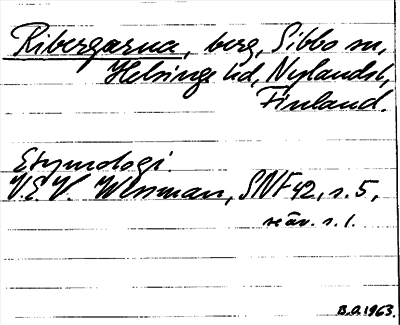 Ribergarna, berg, Sibbo sn,
Helsinge hd, Nylands l.,
Finland.
Etymologi.
V.E.V. Wessman, SNF 42, s. 5,
se äv. s. 1.
B.O. 1963.